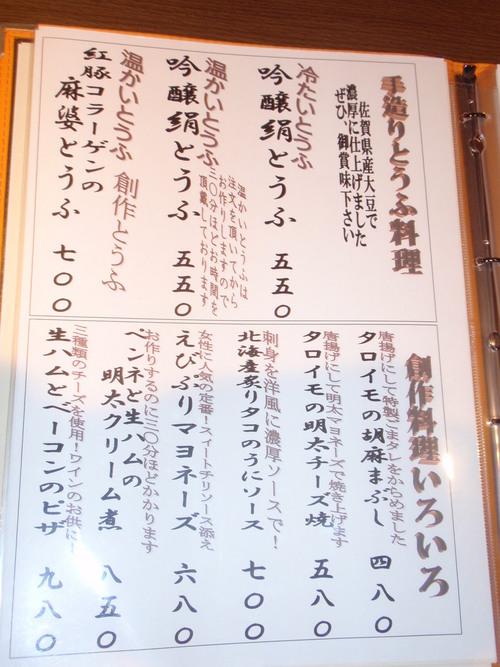 手造りとうふ料理
佐賀県産大豆で
濃厚に仕上げました
ぜひ、御賞味下さい
冷たいとうふ
吟醸絹とうふ 五五〇
温かいとうふは
注文を頂いてから
お作りしますので
三〇分ほどお時間を
頂戴しております
温かいとうふ
吟醸絹とうふ 五五〇
温かいとうふ 創作とうふ
紅豚コラーゲンの
麻婆とうふ 七〇〇
創作料理いろいろ
唐揚げにして特製ごまダレをからめました
タロイモの胡麻まぶし 四八〇
唐揚げにして明太マヨネーズで焼き上げます
タロイモの明太チーズ焼 五八〇
刺身を洋風に濃厚ソースで!
北海産炙りタコのうにソース 七〇〇
女性に人気の定番!スイートチリソース添え
えびぷりマヨネーズ 六八〇
お作りするのに三〇分ほどかかります
ペンネと生ハムの
明太クリーム煮 八五〇
三種類のチーズを使用!ワインのお供に!
生ハムとベーコンのピザ 九八〇